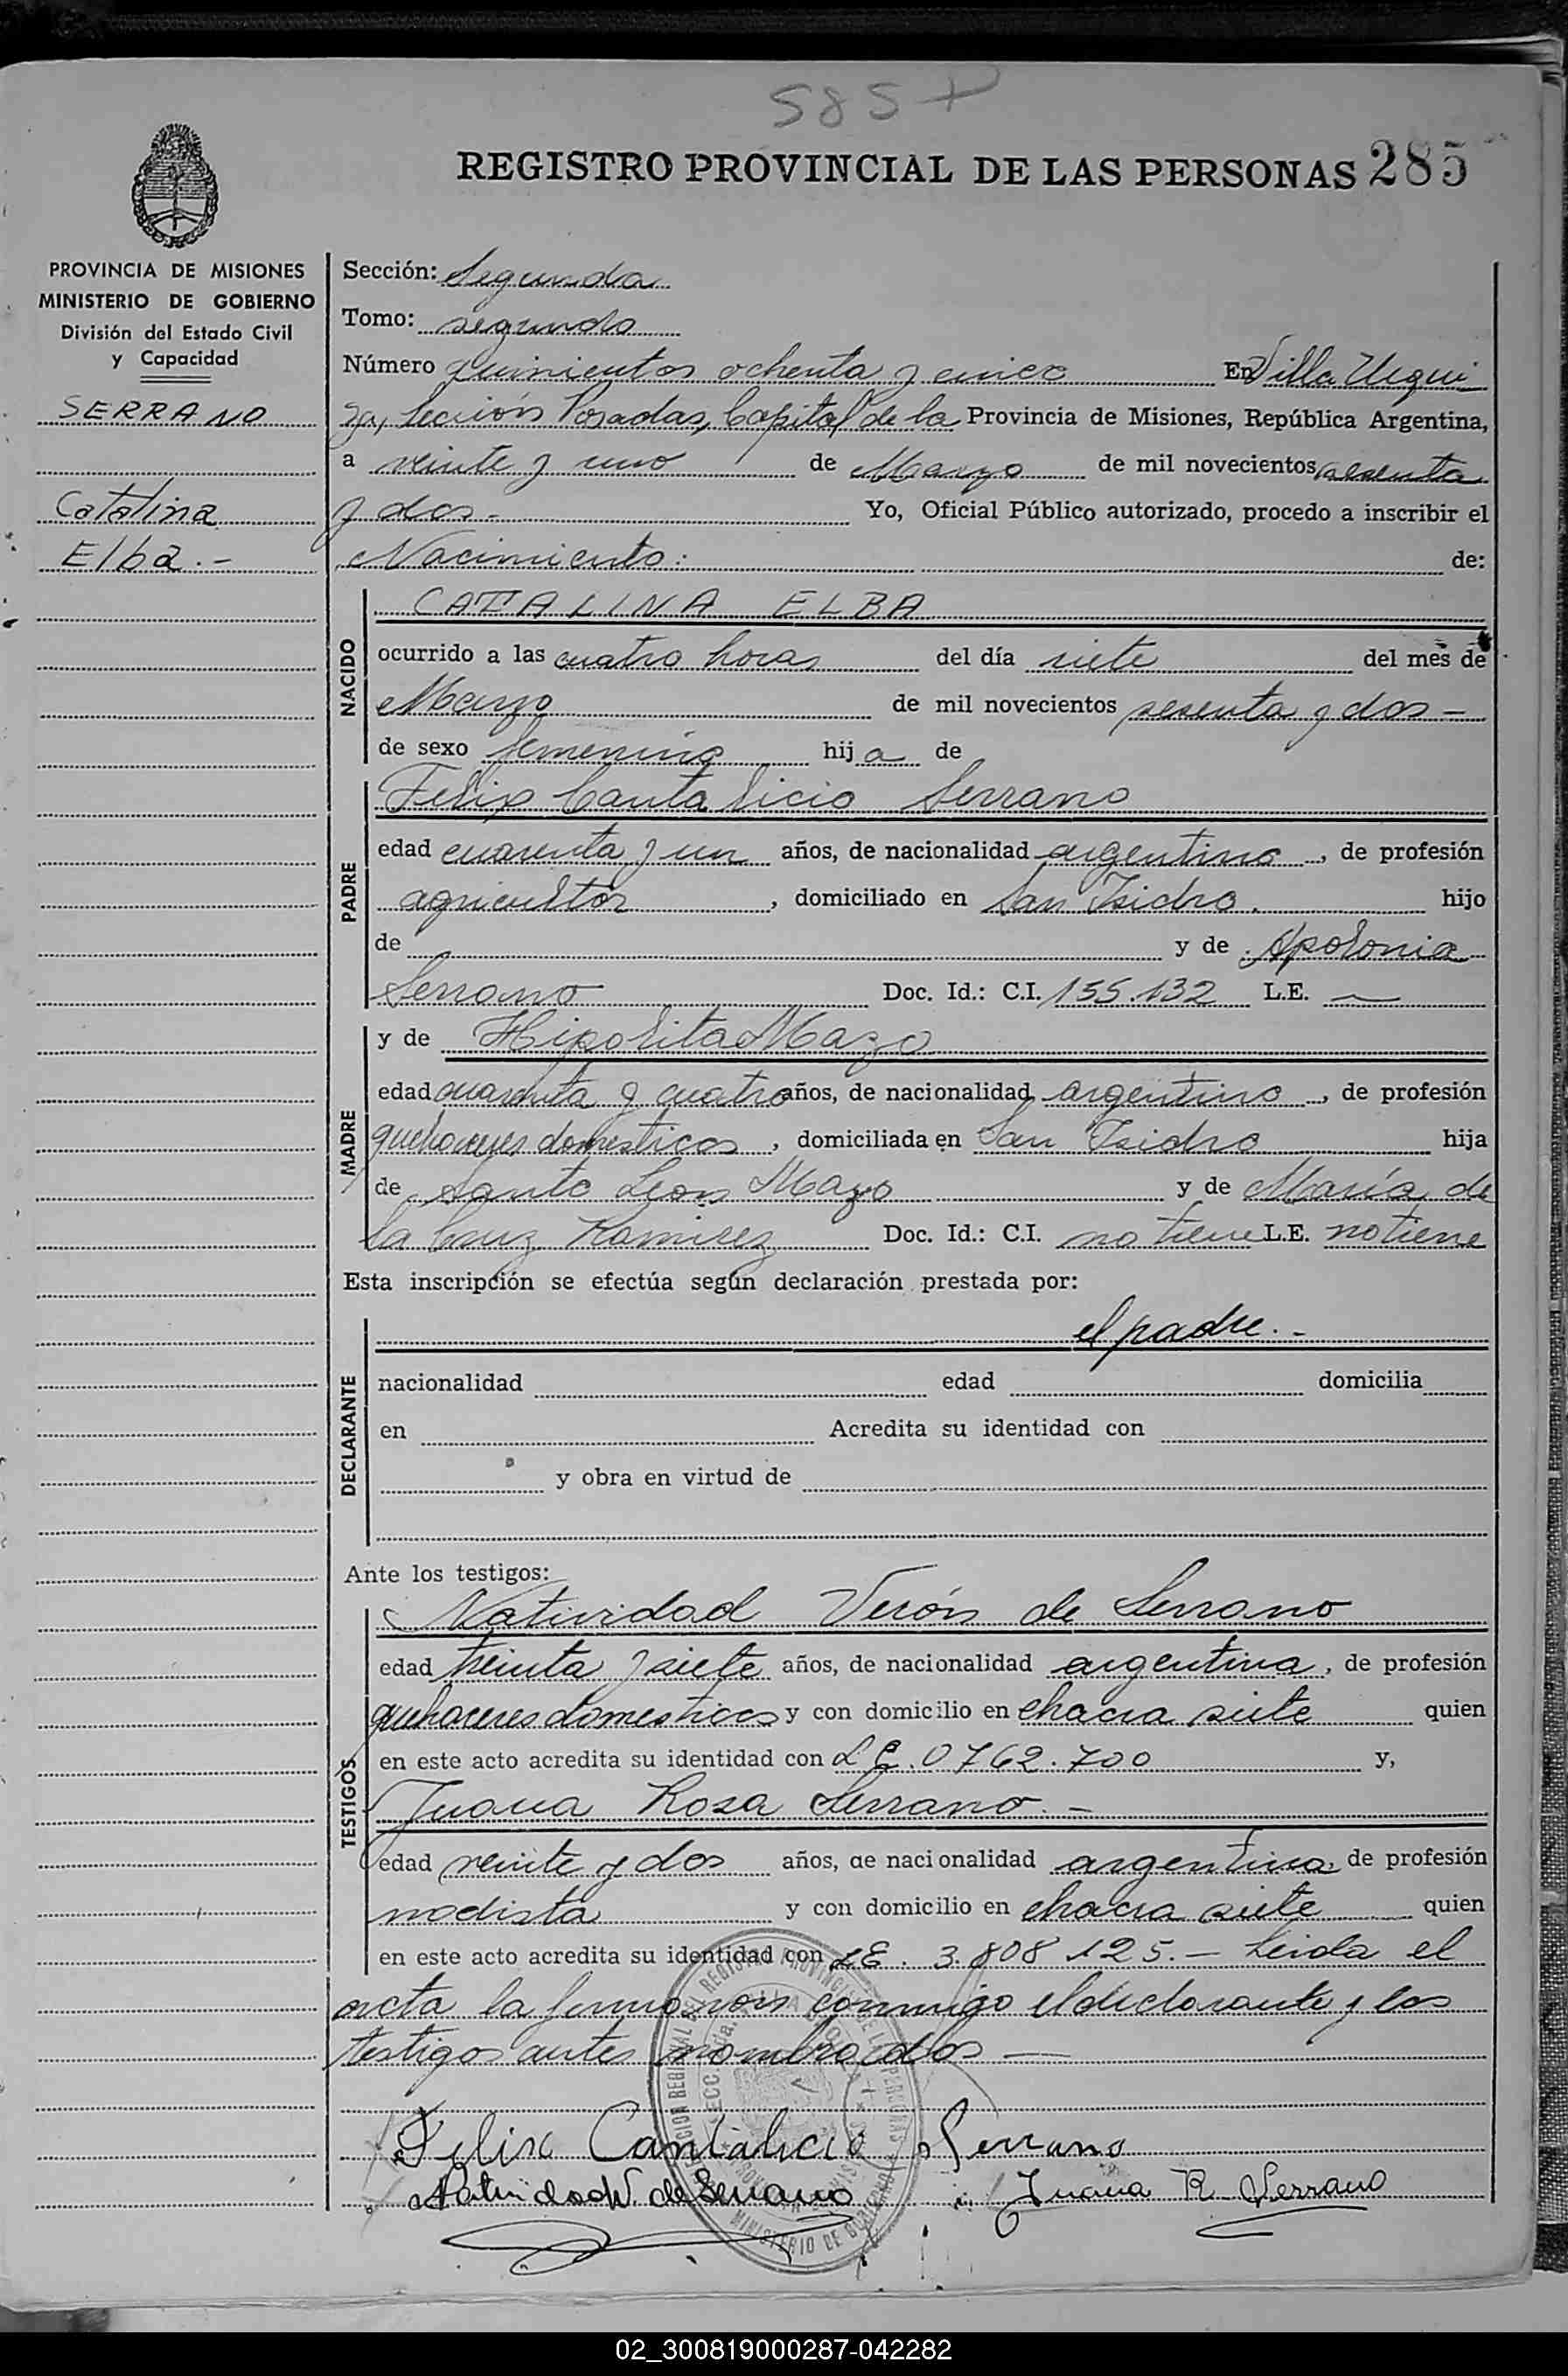 585 +
REGISTRO PROVINCIAL DE LAS PERSONAS 285
PROVINCIA DE MISIONES
MINISTERIO DE GOBIERNO
División del Estado Civil
y Capacidad
SERRANO
Catalina
Elba.-
Sección: Segunda
Tomo: segundo
Número quinientos ochenta y cinco En Villa Urqui
za, Sección Posadas, Capital de la Provincia de Misiones, República Argentina,
a veinte y uno de Marzo de mil novecientos sesenta
y dos.- Yo, Oficial Público autorizado, procedo a inscribir el
Nacimiento: de:
NACIDO
CATALINA ELBA
ocurrido a las cuatro horas del día siete del mes de
Marzo de mil novecientos sesenta y dos -
de sexo femenino hija de
PADRE
Felix Cantalicio Serrano
edad cuarenta y un años, de nacionalidad argentino, de profesión
agricultor, domiciliado en San Isidro. hijo
de y de Apolonia
Serrano Doc. Id.: C.I. 155.132 L.E. —
MADRE
y de Hipolita Mazo
edad cuarenta y cuatro años, de nacionalidad argentino, de profesión
quehaceres domesticos, domiciliada en San Isidro hija
de Santo Leon Mazo y de María de
la Cruz Ramirez Doc. Id.: C.I. no tiene L.E. no tiene
Esta inscripción se efectúa según declaración prestada por:
DECLARANTE
el padre.-
nacionalidad edad domicilia
en Acredita su identidad con
y obra en virtud de
Ante los testigos:
TESTIGOS
Natividad Verón de Serrano
edad treinta y siete años, de nacionalidad argentina, de profesión
quehaceres domesticos y con domicilio en chacra siete quien
en este acto acredita su identidad con L C. 0762.700 y,
Juana Rosa Serrano.-
edad veinte y dos años, de nacionalidad argentina, de profesión
modista y con domicilio en chacra siete quien
en este acto acredita su identidad con LE. 3.808 125.- Leida el
acta la firmaron conmigo el declarante y los
testigos antes nombrados —
Felix Cantalicio Serrano
Natividad V. de Serrano Juana R. Serrano
MINISTERIO DE GOBIERNO
02_300819000287-042282